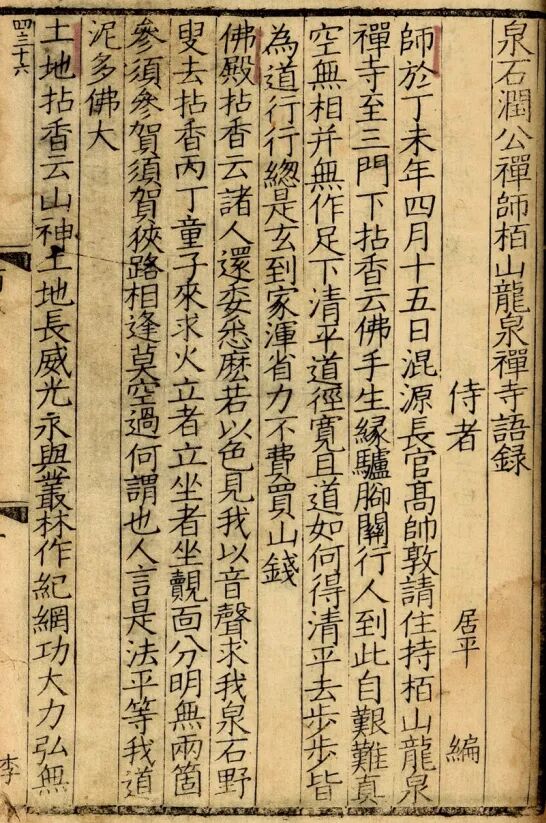 泉石潤公禪師栢山龍泉禪寺語録
侍者　居平　編
師於丁未年四月十五日混源長官髙帥敦請住持栢山龍泉
禪寺至三門下拈香云佛手生緣驢腳關行人到此自艱難真
空無相并無作足下清平道徑寬且道如何得清平去步步皆
為道行行緫是玄到家渾省力不費買山錢
佛殿拈香云諸人還委悉麽若以色見我以音聲求我泉石野
叟去拈香丙丁童子來求火立者立坐者坐覿面分明無兩箇
參須參賀須賀狹路相逢莫空過何謂也人言是法平等我道
泥多佛大
土地拈香云山神土地長威光永與叢林作紀綱功大力弘無
四三十六
李